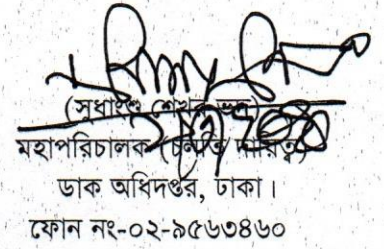 (সুধাংশু শেখর ভদ্র)
মহাপরিচালক (চলতি দায়িত্ব)
ডাক অধিদপ্তর, ঢাকা।
ফোন নং-০২-৯৫৬৩৪৬০